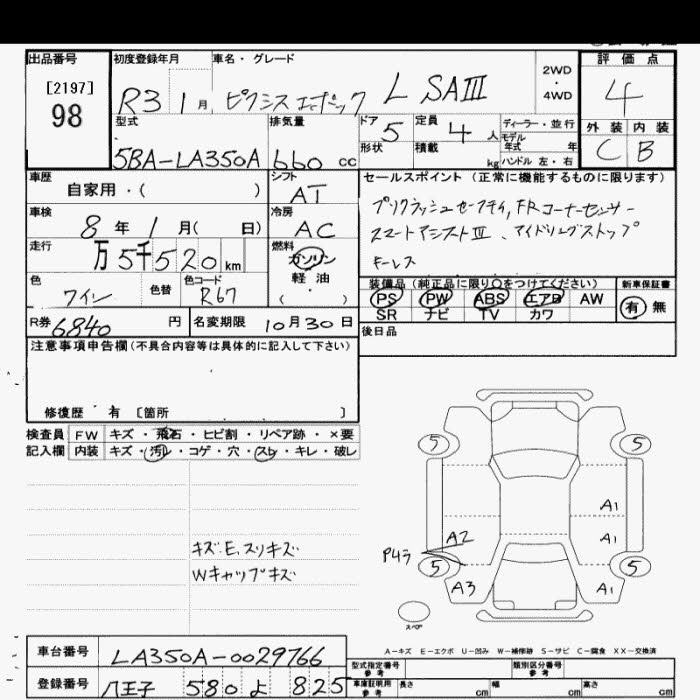 出品番号 初度登録年月 車名・グレード 2WD・4WD 評価点
[2197]
98 R3 1月 ピクシスエポック L SAⅢ 4
型式 排気量 ドア 5 定員 4人 ディーラー・並行 外装 内装
モデル年式 年
5BA-LA350A 660cc 形状 積載 kg ハンドル 左・右 C B
車歴 自家用・( ) シフト AT セールスポイント (正常に機能するものに限ります)
車検 8年1月( 日) 冷房 AC プリクラッシュセーフティ, FRコーナーセンサー
走行 万5千520km 燃料 ガソリン 軽油 ・( ) スマートアシストⅢ、アイドリングストップ
色 ワイン 色替 色コード R67 キーレス
装備品 (純正品に限り○をつけてください) 新車保証書
PS PW ABS エアB AW 有 無
R券 6840円 名変期限 10月30日 SR ナビ TV カワ
注意事項申告欄(不具合内容等は具体的に記入して下さい) 後日品
修復歴・有 [箇所 ]
検査員 FW キズ・飛石・ヒビ割・リペア跡・×要
記入欄 内装 キズ・汚レ・コゲ・穴・スレ・キレ・破レ
5 5
A1
A2 A1
P4ラ
5 5
A3 A1
キズ・E,スリキズ
Wキャップキズ
スペア
A-キズ E-エクボ U-凹み W-補修跡 S-サビ C-腐食 XX-交換済
車台番号 LA350A-0029766 型式指定番号 参考 類別区分番号 参考
登録番号 八王子 580 よ 825 車庫証明用 参考 長さ cm 幅 cm 高さ cm